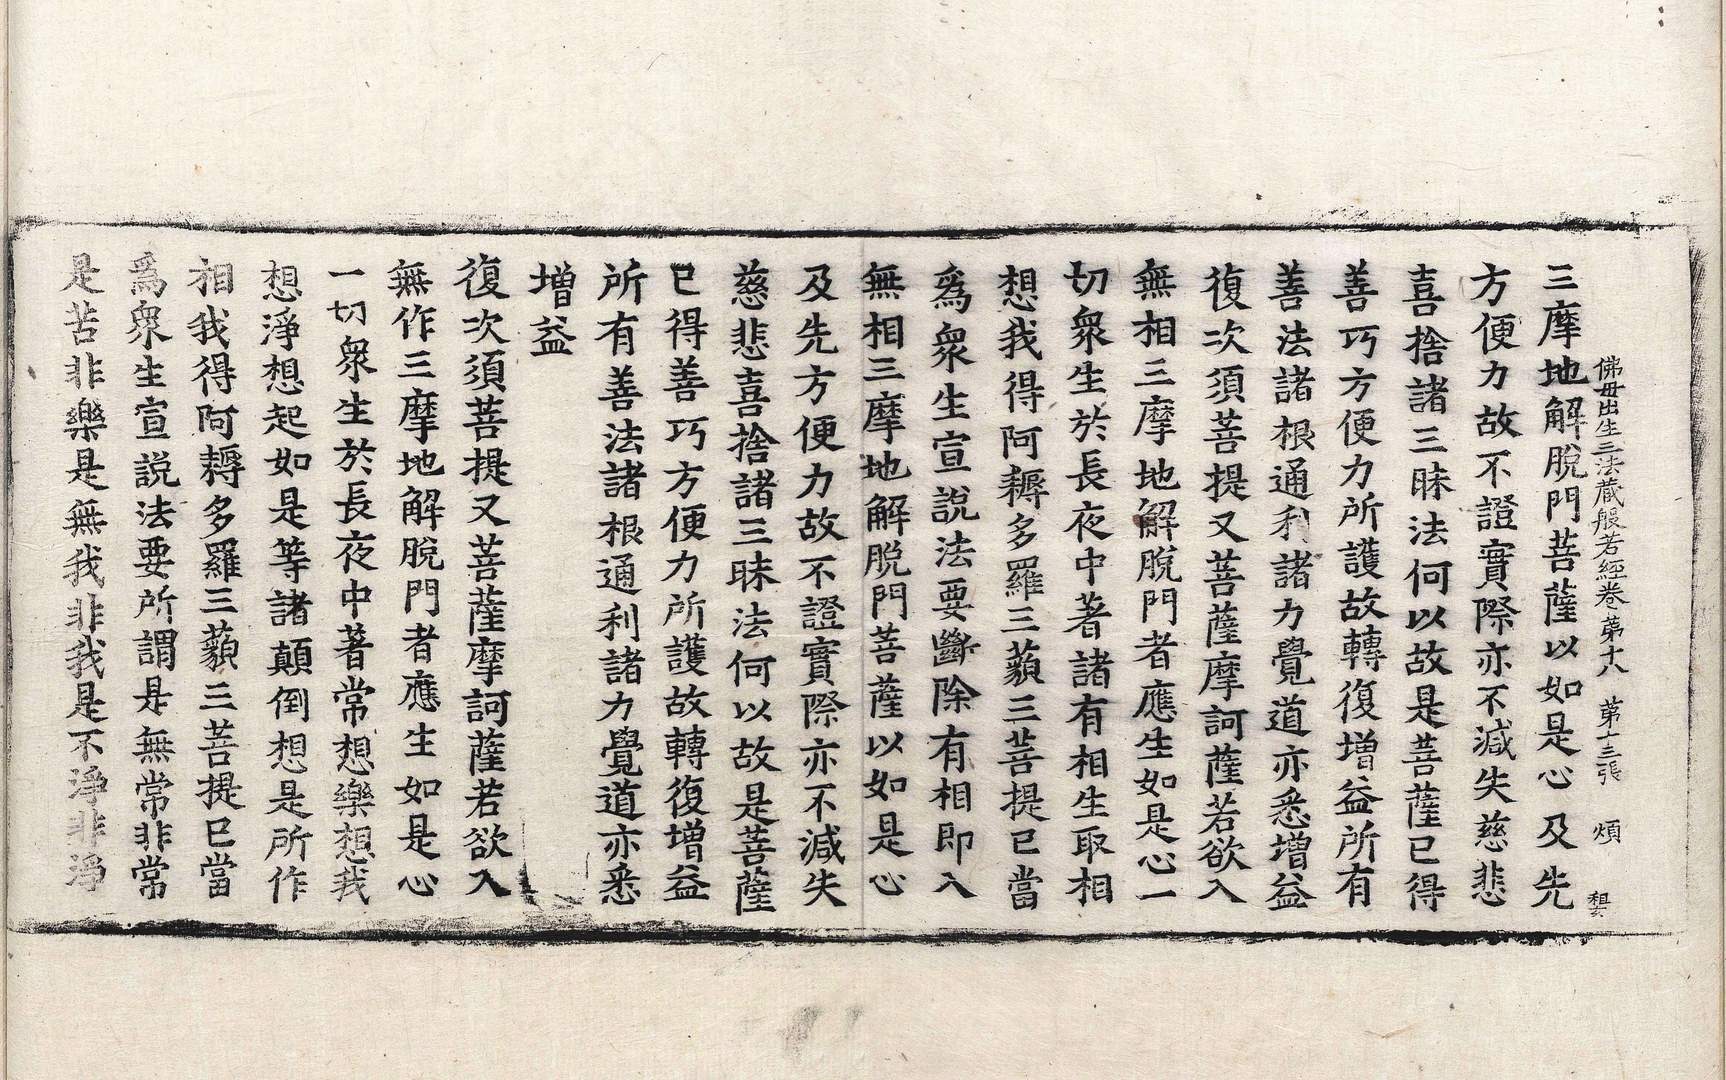 佛母出生三法藏般若經卷第十八 第十三張 煩
三摩地解脫門菩薩以如是心及先
方便力故不證實際亦不減失慈悲
喜捨諸三昧法何以故是菩薩已得
善巧方便力所護故轉復增益所有
善法諸根通利諸力覺道亦悉增益
復次須菩提又菩薩摩訶薩若欲入
無相三摩地解脫門者應生如是心一
切眾生於長夜中著諸有相生取相
想我得阿耨多羅三藐三菩提已當
為眾生宣說法要斷除有相即入
無相三摩地解脫門菩薩以如是心
及先方便力故不證實際亦不減失
慈悲喜捨諸三昧法何以故是菩薩
已得善巧方便力所護故轉復增益
所有善法諸根通利諸力覺道亦悉
增益
復次須菩提又菩薩摩訶薩若欲入
無作三摩地解脫門者應生如是心
一切眾生於長夜中著常想樂想我
想淨想起如是等諸顛倒想是所作
相我得阿耨多羅三藐三菩提已當
為眾生宣說法要所謂是無常非常
是苦非樂是無我非我是不淨非淨